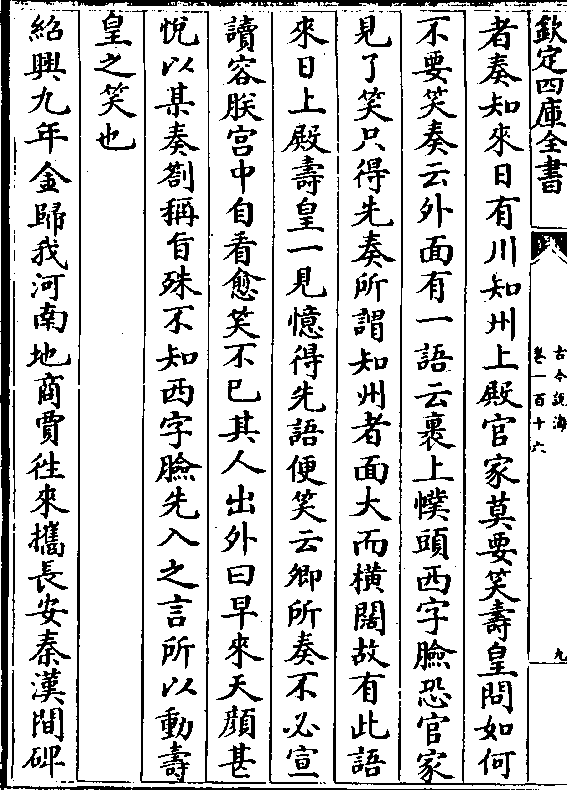 欽定四庫全書
古今說海
卷一百十六
九
者奏知來日有川知州上殿官家莫要笑壽皇問如何
不要笑奏云外面有一語云裹上幞頭西字臉恐官家
見了笑只得先奏所謂知州者面大而橫闊故有此語
來日上殿壽皇一見憶得先語便笑云卿所奏不必宣
讀容朕宫中自看愈笑不已其人出外曰早來天顔甚
悅以某奏劄稱旨殊不知西字臉先入之言所以動壽
皇之笑也
紹興九年金歸我河南地商賈徃來攜長安秦漢間碑